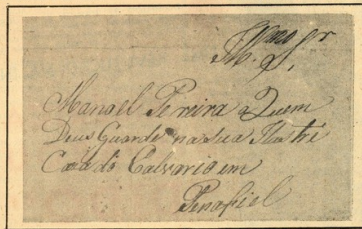 Manoel Pereira a Quem
Deus Guarde na sua Illustre
Caza do Calvario em
Penafiel